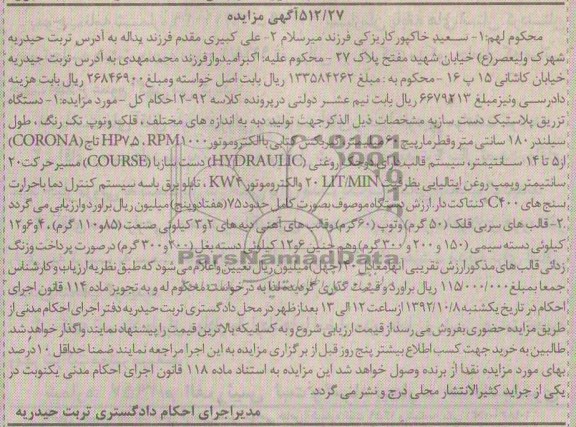 ۵۱۲/۲۷آگهی مزایده
محکوم لهم:۱- سعید خاکپور کاریزکی فرزند میرسلام ۲- علی کبیری مقدم فرزند یداله به آدرس تربت حیدریه
شهرک ولیعصر(ع) خیابان شهید مفتح پلاک ۲۷ - محکوم علیه: اکبر امیدواز فرزند محمدمهدی به آدرس تربت حیدریه
خیابان کاشانی ۱۵ پ ۱۶ - محکوم به : مبلغ ۱۳۳۵۸۴۲۶۲ ریال بابت اصل خواسته ومبلغ ۲۶۸۴۶۹۰۰ ریال بابت هزینه
دادرسی ونیز مبلغ ۶۶۷۹۲۱۳ ریال بابت نیم عشر دولتی در پرونده کلاسه ۹۲-۲ احکام کل - مورد مزایده:۱- دستگاه
تزریق پلاستیک دست سازبه مشخصات ذیل الذکر جهت تولید دبه به اندازه های مختلف ، قلک وتوپ تک رنگ ، طول
سیلندر ۱۸۰ سانتی متر وقطر مارپیچ ۶۰ میلیمتر، گیربکس کتابی با الکتروموتور HP۷.۵ ، RPM۱۰۰۰ تاج (CORONA)
از ۵ تا ۱۴ سانتیمتر، سیستم قالب های هیدرولیک روغنی (HYDRAULIC) دست ساز با (COURSE) مسیر حرکت ۲۰
سانتیمتر وپمپ روغن ایتالیایی بظرفیت LIT/MIN ۲۰ والکتروموتور KW۴ ، تابلو برق باسه سیستم کنترل دما باحرارت
سنج های C۴۰۰ کنتاکت دار ارزش دستگاه موصوف بصورت کامل حدود ۷۵ (هفتادوپنج) میلیون ریال براورد وارزیابی می گردد
۲- قالب های سربی قلک (۵۰ گرم) وتوپ (۶۰ گرم) وقالب های آهنی دبه های ۲و۳ کیلوئی صنعت (۸۵و۱۱۰ گرم) ، ۴و۶و۱۲
کیلوئی دسته سیمی (۱۵۰ و ۲۰۰ و ۳۰۰ گرم) وهم چنین ۶و۱۲ کیلوئی دسته بغل (۲۰۰و ۳۰۰ گرم) درصورت پرداخت وزنگ
زدائی قالب های مذکور ارزش تقریبی آنها مقابل ۴۰ (چهل) میلیون ریال تعیین واعلام می شود که طبق نظریه ارزیاب وکارشناس
جمعا بمبلغ ۱۱۵/۰۰۰/۰۰۰ ریال براورد و قیمت گذاری گردیده لذا به درخواست محکوم له و به تجویز ماده ۱۱۴ قانون اجرای
احکام در تاریخ یکشنبه ۱۳۹۲/۱۰/۸ از ساعت ۱۲ الی ۱۳ بعدازظهر در محل دادگستری تربت حیدریه دفتر اجرای احکام مدنی از
طریق مزایده حضوری بفروش می رسد از قیمت ارزیابی شروع و به کسانیکه بالاترین قیمت را پیشنهاد نمایند واگذار خواهد شد
طالبین به خرید جهت کسب اطلاع بیشتر پنج روز قبل از برگزاری مزایده به این اجرا مراجعه نمایند ضمنا حداقل ۱۰ درصد
بهای مورد مزایده نقدا از برنده وصول خواهد شد این مزایده به استناد ماده ۱۱۸ قانون اجرای احکام مدنی یکنوبت در
یکی از جراید کثیرالانتشار محلی درج و نشر می گردد.
مدیر اجرای احکام دادگستری تربت حیدریه
ParsNamadData